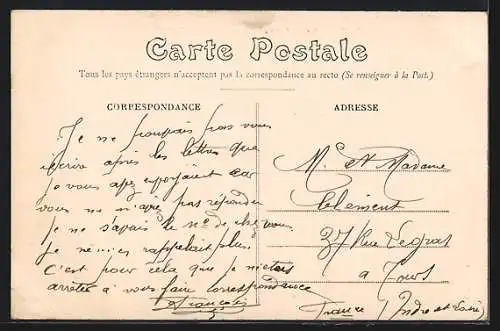 Carte Postale
Tous les pays étrangers n'acceptent pas la correspondance au recto (Se renseigner à la Post.)
CORRESPONDANCE
Je ne pouvais pas vous
écrire après les lettres que
je vous car
vous ne m'avez pas répondu
je ne savais le n° de chez vous
Je ne rappelait plus
C'est pour cela que je
arrêtée à vous faire correspondance
ADRESSE
M. et Madame
Clément
37 Rue
a Tours
France Indre et Loire